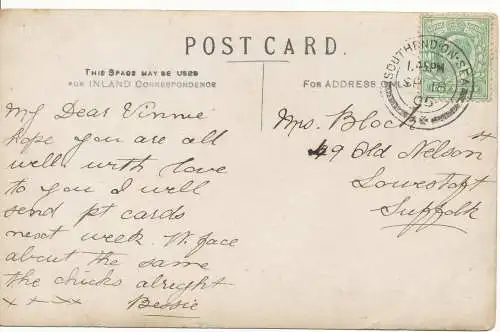 POST CARD.
THIS SPACE MAY BE USED
FOR INLAND CORRESPONDENCE
FOR ADDRESS ONLY
SOUTHEND-ON-SEA
1.45PM
18
05
My Dear Vinnie
hope you are all
well with love
to you I will
send pt cards
next week. W. face
about the same
the chicks alright
x + x x Bessie
Mrs. Block
49 Old Nelson St
Lowestoft
Suffolk